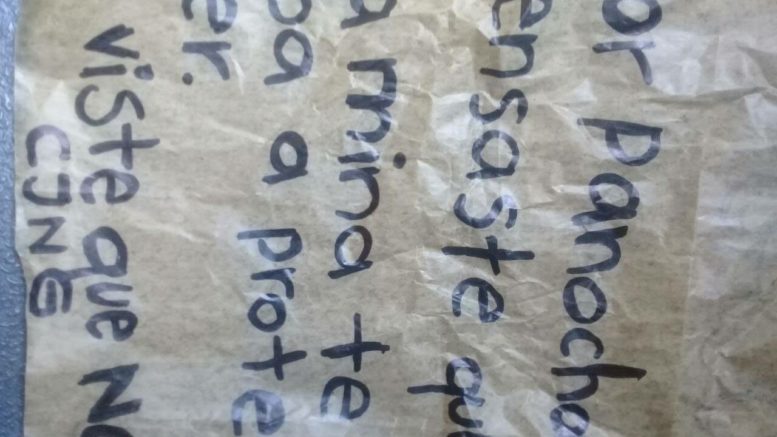 or panocha
ensaste qu
a mina te
ba a prote
er.
viste que NO
CJNG